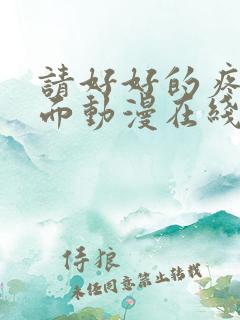 請好好的疼
而動漫在綫
侍狼
未经同意禁止转载